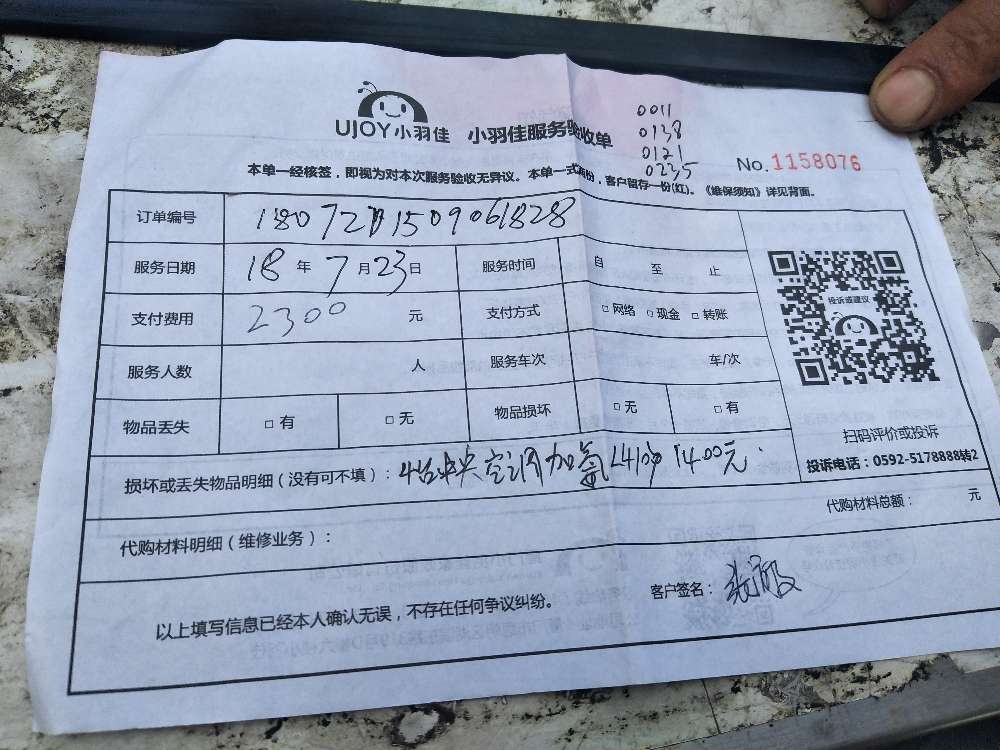 UJOY小羽佳 小羽佳服务验收单
0011
0138
0121
0235
No.1158076
本单一经核签，即视为对本次服务验收无异议。本单一式两份，客户留存一份(红)。《维保须知》详见背面。
订单编号
服务日期 18 年 7 月 23 日 服务时间 自 至 止
支付费用 2300 元 支付方式 □网络 □现金 □转账
服务人数 人 服务车次 车/次
物品丢失 □有 □无 物品损坏 □无 □有
投诉或建议
扫码评价或投诉
投诉电话：0592-5178888转2
损坏或丢失物品明细（没有可不填）：4台中央空调加氟 1400元
代购材料明细（维修业务）： 代购材料总额： 元
以上填写信息已经本人确认无误，不存在任何争议纠纷。
客户签名：